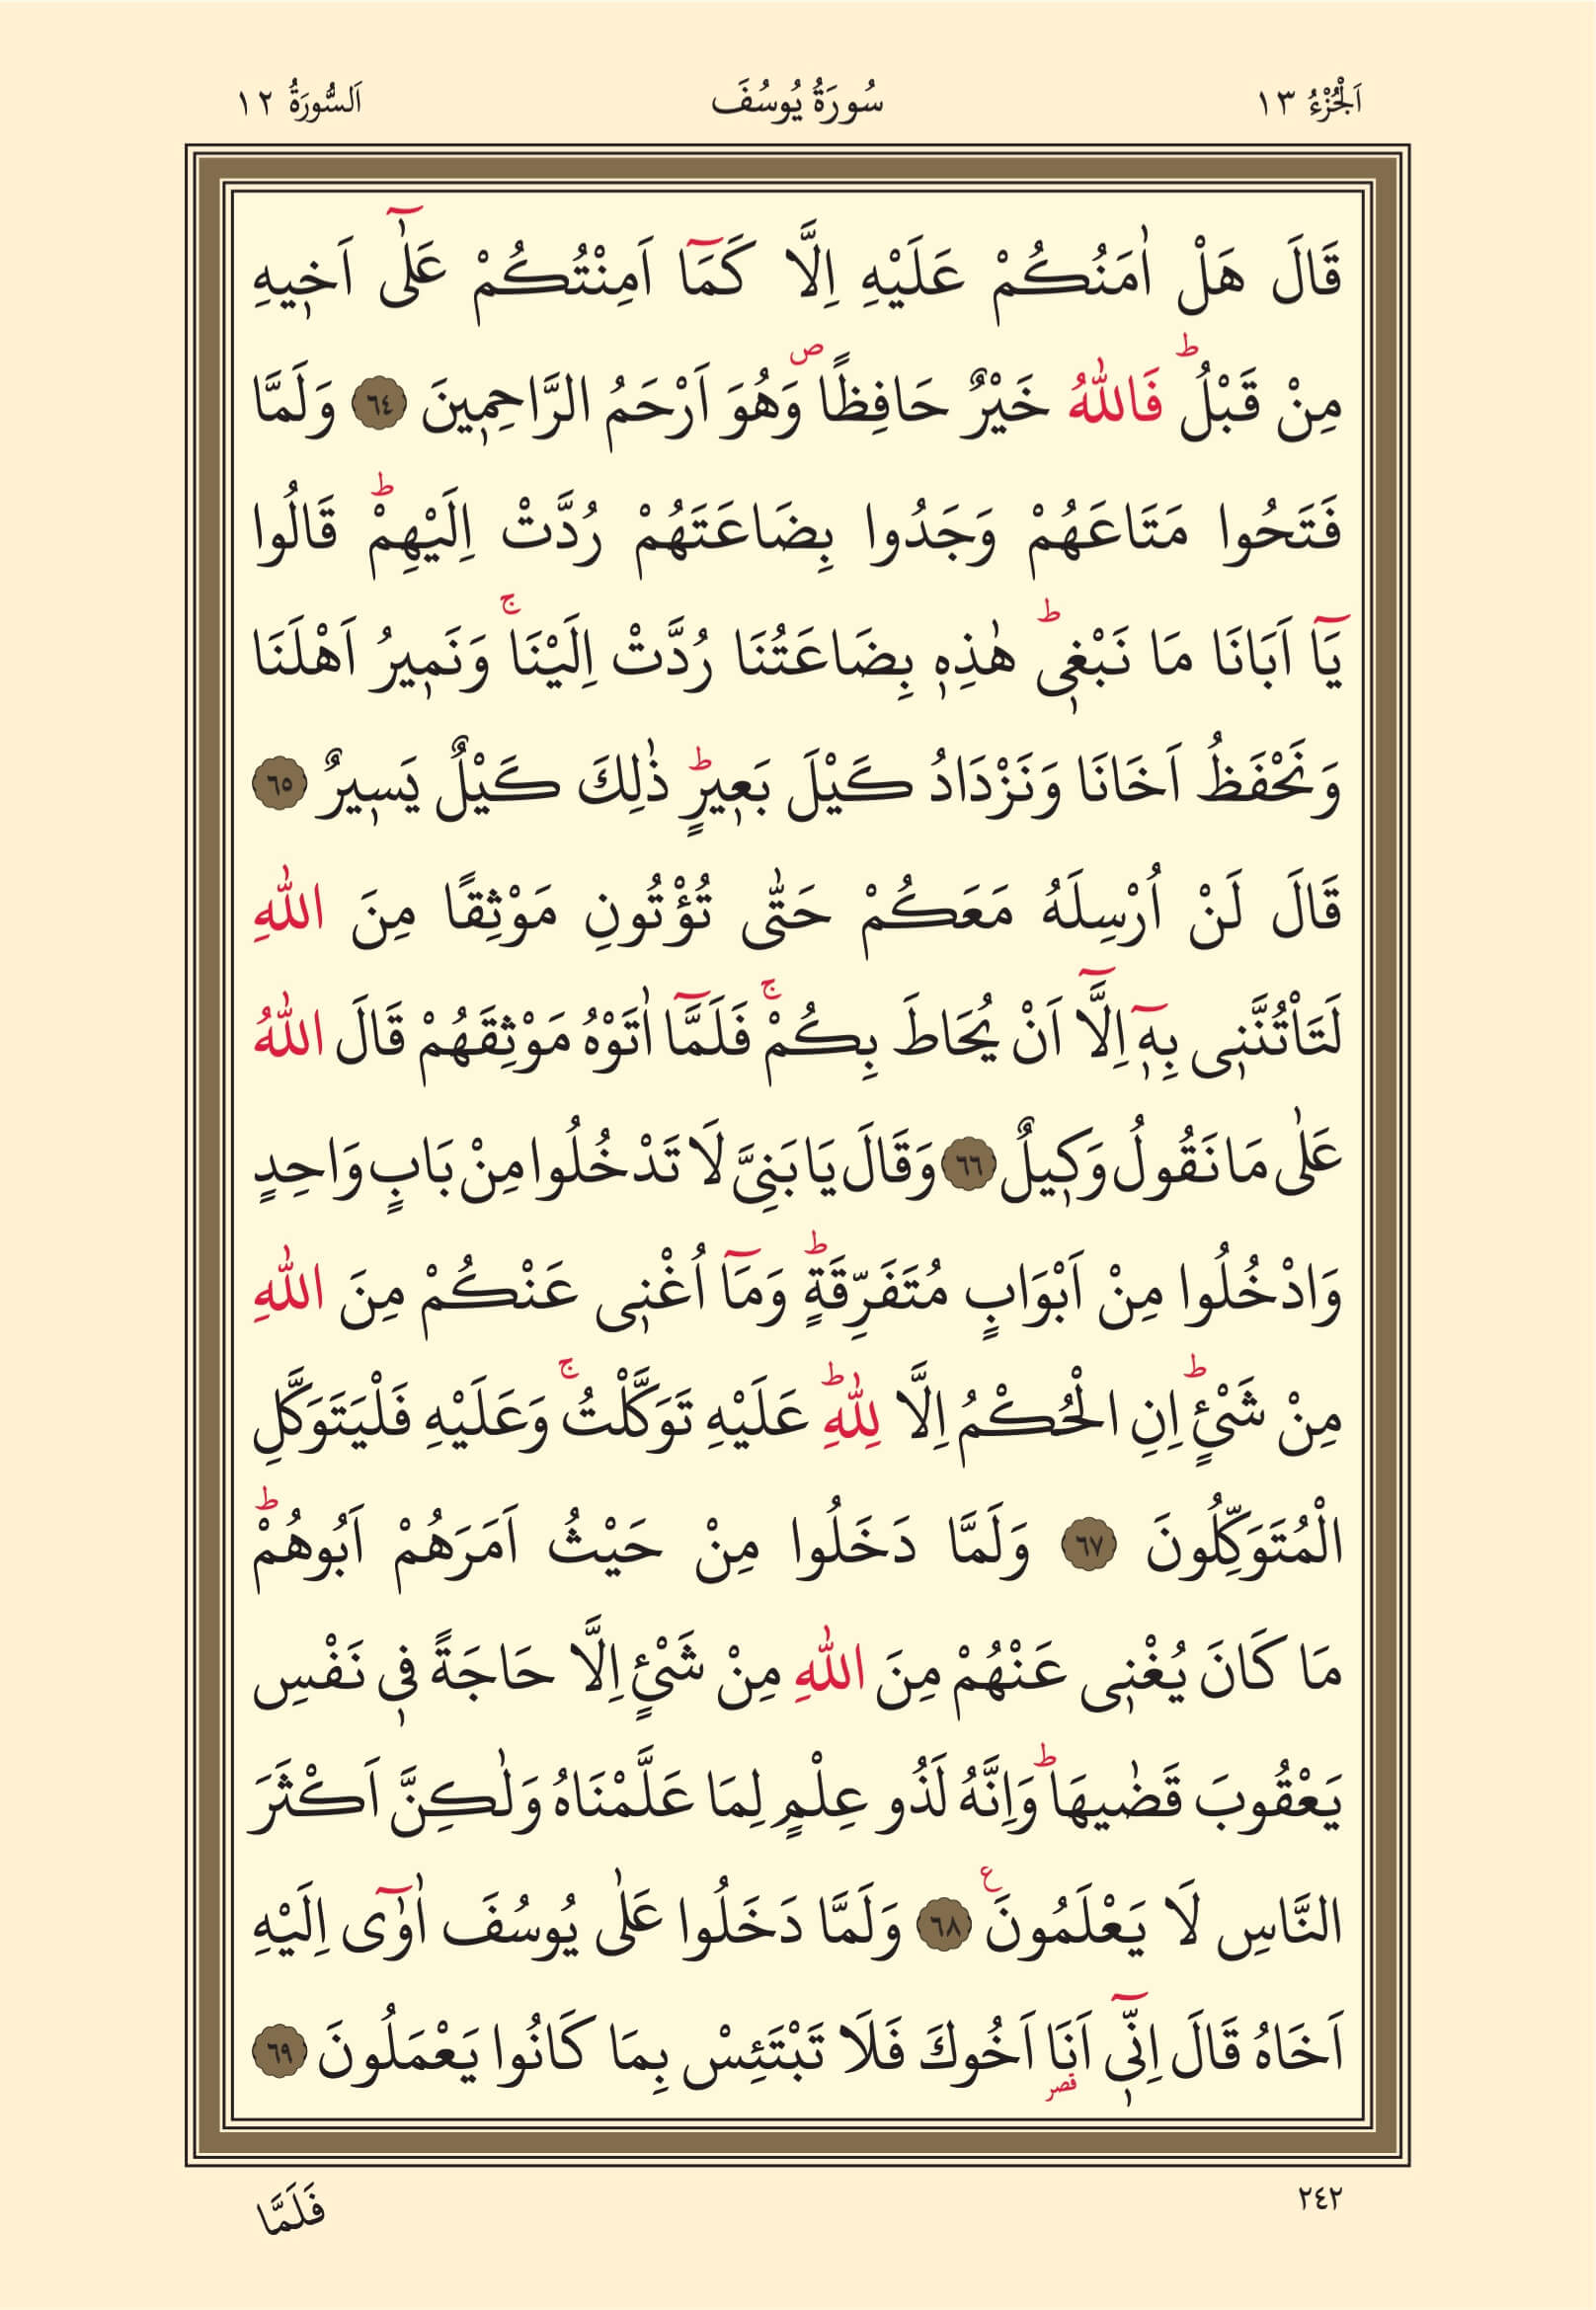 اَلْجُزْءُ ١٣ سُورَةُ يُوسُفَ اَلسُّورَةُ ١٢
قَالَ هَلْ اٰمَنُكُمْ عَلَيْهِ اِلَّا كَمَٓا اَمِنْتُكُمْ عَلٰٓى اَخ۪يهِ
مِنْ قَبْلُۜ فَاللّٰهُ خَيْرٌ حَافِظًاۖ وَهُوَ اَرْحَمُ الرَّاحِم۪ينَ ٦٤ وَلَمَّا
فَتَحُوا مَتَاعَهُمْ وَجَدُوا بِضَاعَتَهُمْ رُدَّتْ اِلَيْهِمْۜ قَالُوا
يَٓا اَبَانَا مَا نَبْغ۪يۜ هٰذِه۪ بِضَاعَتُنَا رُدَّتْ اِلَيْنَاۚ وَنَم۪يرُ اَهْلَنَا
وَنَحْفَظُ اَخَانَا وَنَزْدَادُ كَيْلَ بَع۪يرٍۜ ذٰلِكَ كَيْلٌ يَس۪يرٌ ٦٥
قَالَ لَنْ اُرْسِلَهُ مَعَكُمْ حَتّٰى تُؤْتُونِ مَوْثِقًا مِنَ اللّٰهِ
لَتَأْتُنَّن۪ي بِه۪ٓ اِلَّٓا اَنْ يُحَاطَ بِكُمْۚ فَلَمَّٓا اٰتَوْهُ مَوْثِقَهُمْ قَالَ اللّٰهُ
عَلٰى مَا نَقُولُ وَك۪يلٌ ٦٦ وَقَالَ يَا بَنِيَّ لَا تَدْخُلُوا مِنْ بَابٍ وَاحِدٍ
وَادْخُلُوا مِنْ اَبْوَابٍ مُتَفَرِّقَةٍۜ وَمَٓا اُغْن۪ي عَنْكُمْ مِنَ اللّٰهِ
مِنْ شَيْءٍۜ اِنِ الْحُكْمُ اِلَّا لِلّٰهِۜ عَلَيْهِ تَوَكَّلْتُۚ وَعَلَيْهِ فَلْيَتَوَكَّلِ
الْمُتَوَكِّلُونَ ٦٧ وَلَمَّا دَخَلُوا مِنْ حَيْثُ اَمَرَهُمْ اَبُوهُمْۜ
مَا كَانَ يُغْن۪ي عَنْهُمْ مِنَ اللّٰهِ مِنْ شَيْءٍ اِلَّا حَاجَةً ف۪ي نَفْسِ
يَعْقُوبَ قَضٰيهَاۜ وَاِنَّهُ لَذُو عِلْمٍ لِمَا عَلَّمْنَاهُ وَلٰكِنَّ اَكْثَرَ
النَّاسِ لَا يَعْلَمُونَ ع ٦٨ وَلَمَّا دَخَلُوا عَلٰى يُوسُفَ اٰوٰٓى اِلَيْهِ
اَخَاهُ قَالَ اِنّ۪ٓي اَنَا قصر اَخُوكَ فَلَا تَبْتَئِسْ بِمَا كَانُوا يَعْمَلُونَ ٦٩
٢٤٢ فَلَمَّا